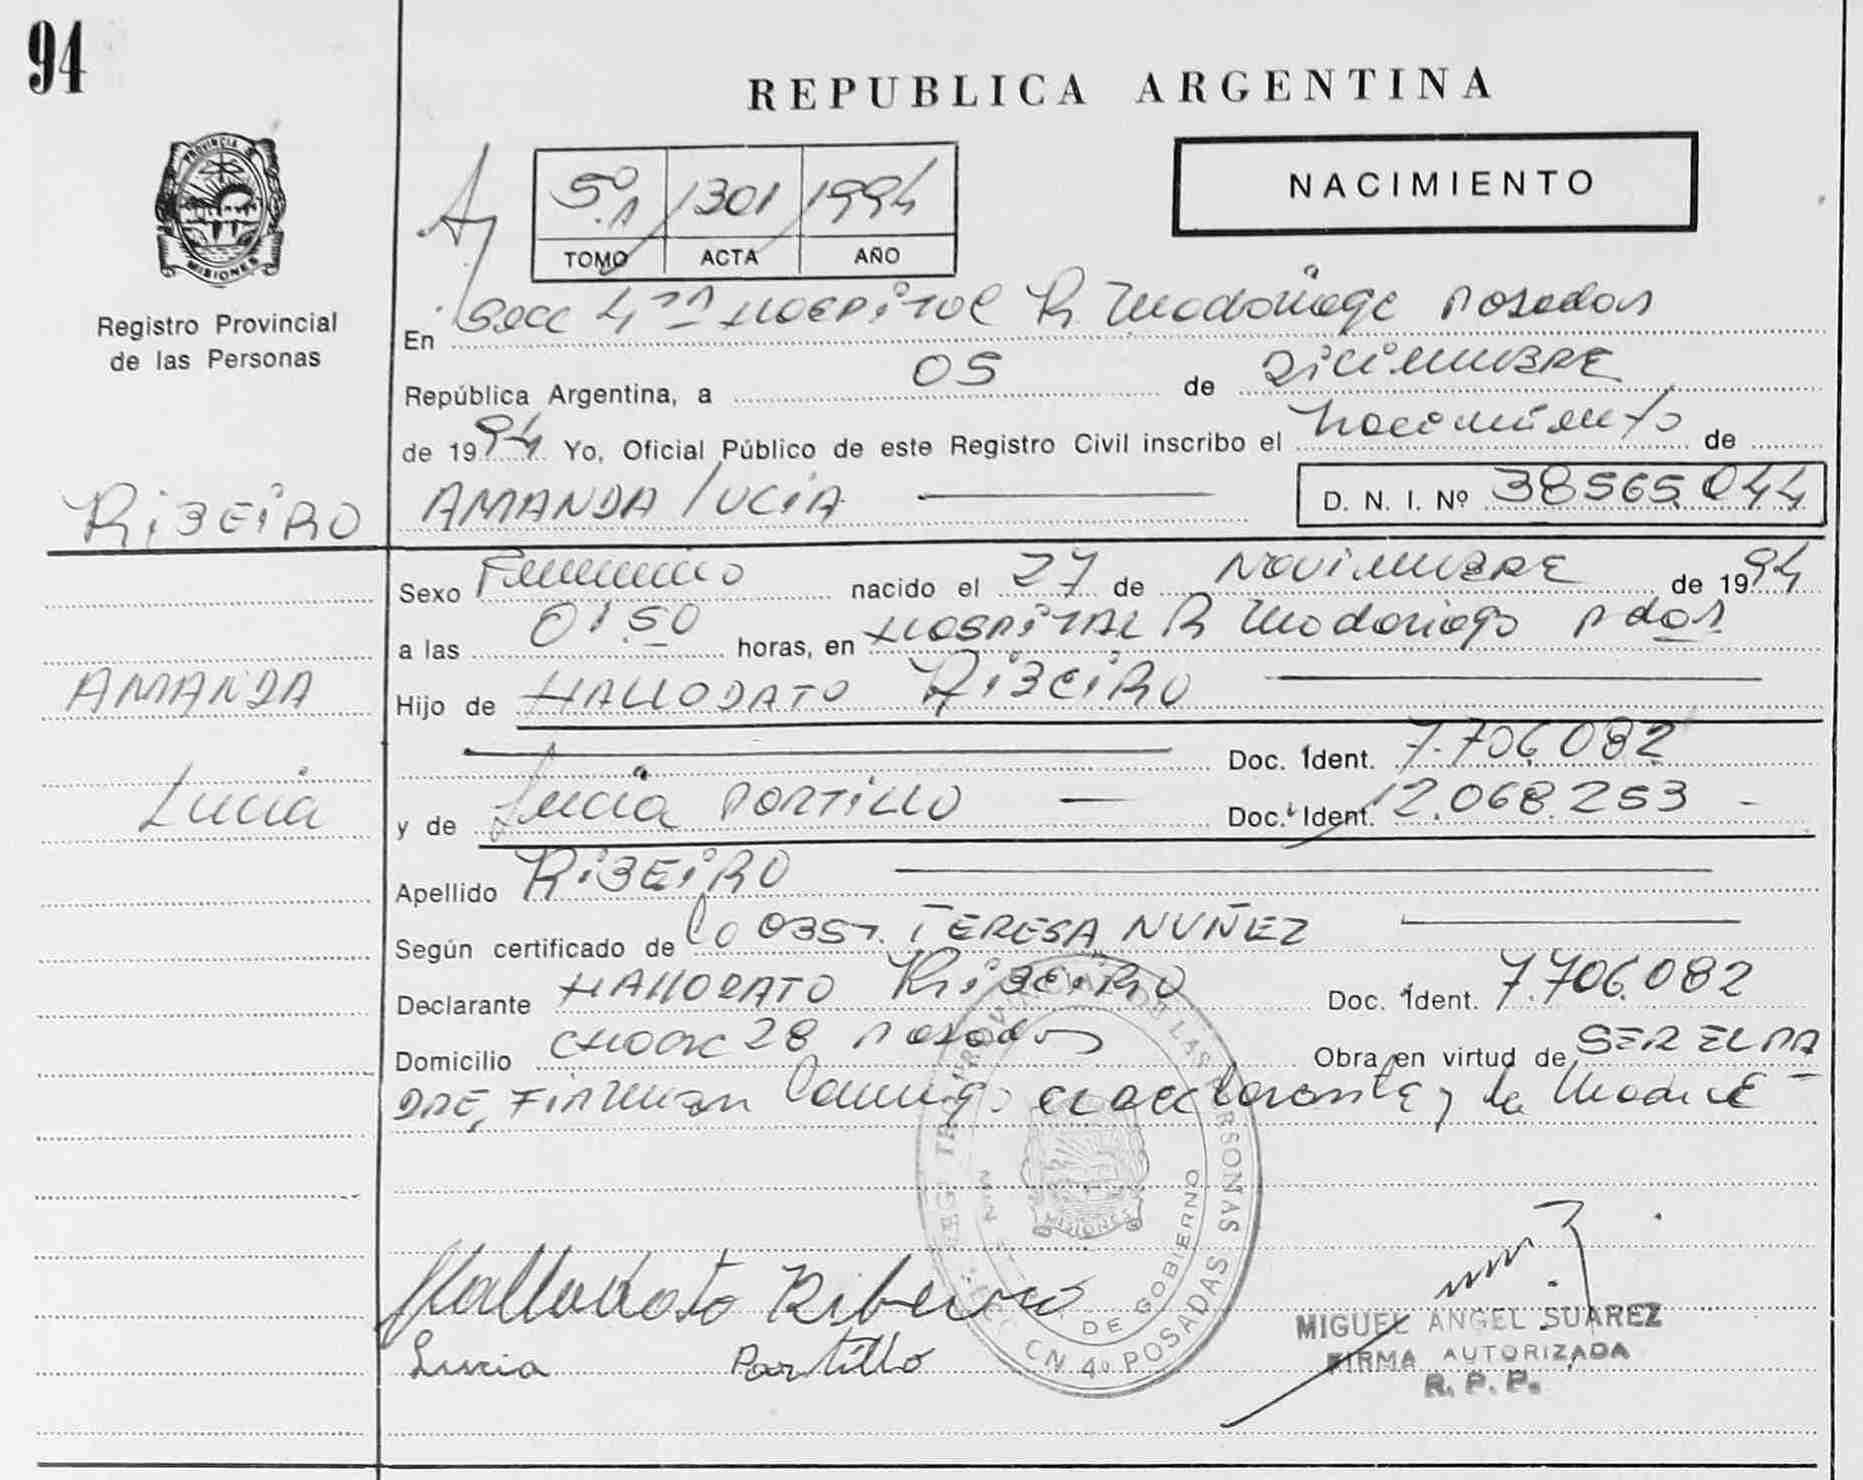 94
REPUBLICA ARGENTINA
PROVINCIA D
MISIONES
Registro Provincial
de las Personas
5º 1301 1994
TOMO ACTA AÑO
NACIMIENTO
En Secc 4ta Hospital R Madariaga Posadas
República Argentina, a 05 de Diciembre
de 1994 Yo, Oficial Público de este Registro Civil inscribo el Nacimiento de
RIBEIRO AMANDA LUCIA D. N. I. Nº 38565.044
Sexo Femenino nacido el 27 de NOVIEMBRE de 1994
a las 01.50 horas, en HOSPITAL R Madariaga Pdas
AMANDA
Hijo de HALLODATO RIBEIRO
Doc. Ident. 7.706.082
Lucia
y de Lucia PORTILLO Doc. Ident. 12.068.253
Apellido RIBEIRO
Según certificado de la OBST. TERESA NUÑEZ
Declarante HALLODATO RIBEIRO Doc. Ident. 7.706.082
Domicilio 28 Posadas Obra en virtud de SER EL PA
DRE, FIRMAN Conmigo el declarante y la Madre
REG PROVINCIAL DE LAS PERSONAS
MIN DE GOBIERNO
MISIONES
CN 4º POSADAS
Hallodato Ribeiro
Lucia Portillo
MIGUEL ANGEL SUAREZ
FIRMA AUTORIZADA
R. P. P.